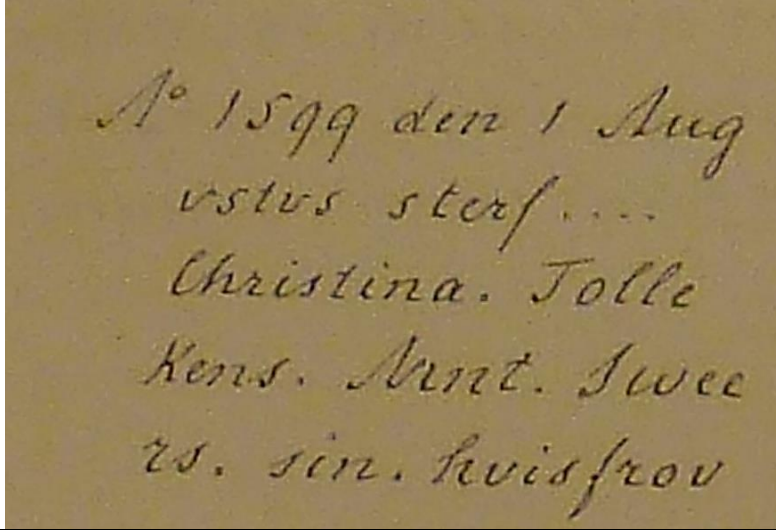 A° 1599 den 1 Aug
vstvs sterf....
Christina. Tolle
Kens. Arnt. Swee
rs. sin. hvisfrov